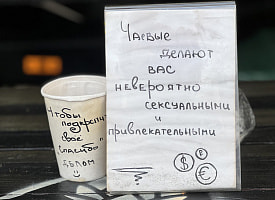 Чаевые
делают
вас
невероятно
сексуальными
и
привлекательными
$
€
Чтобы
подкрепить
свое
"спасибо"
делом